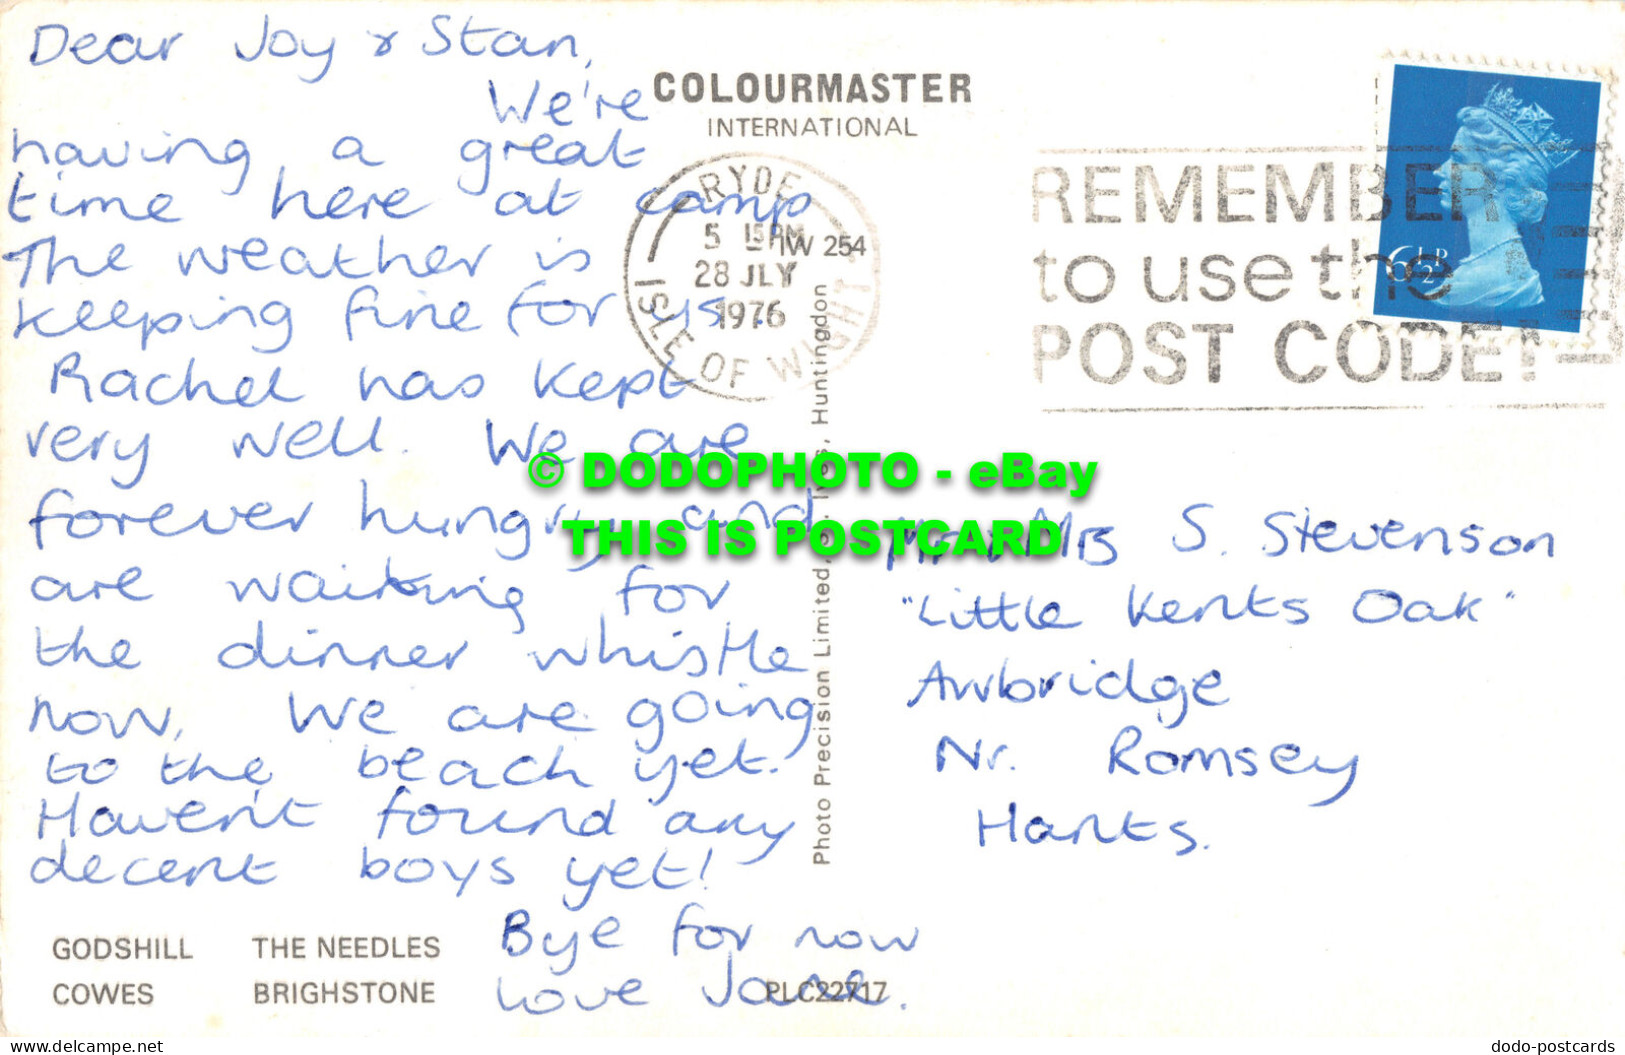 Dear Joy & Stan,
We're
having a great
time here at camp
The weather is
keeping fine for us.
Rachel has kept
very well. We are
forever hungry and
are waiting for
the dinner whistle
now. We are going
to the beach yet.
Haven't found any
decent boys yet!
Bye for now
Love Jane.
GODSHILL THE NEEDLES
COWES BRIGHSTONE
PLC22717
COLOURMASTER
INTERNATIONAL
RYDE
5 15 PM
IW 254
28 JLY
1976
ISLE OF WIGHT
Photo Precision Limited, St. Ives, Huntingdon
REMEMBER
to use the
POST CODE!
6½P
© DODOPHOTO - eBay
THIS IS POSTCARD
Mr & Mrs S. Stevenson
"Little Kents Oak"
Awbridge
Nr. Romsey
Hants.
www.delcampe.net
dodo-postcards